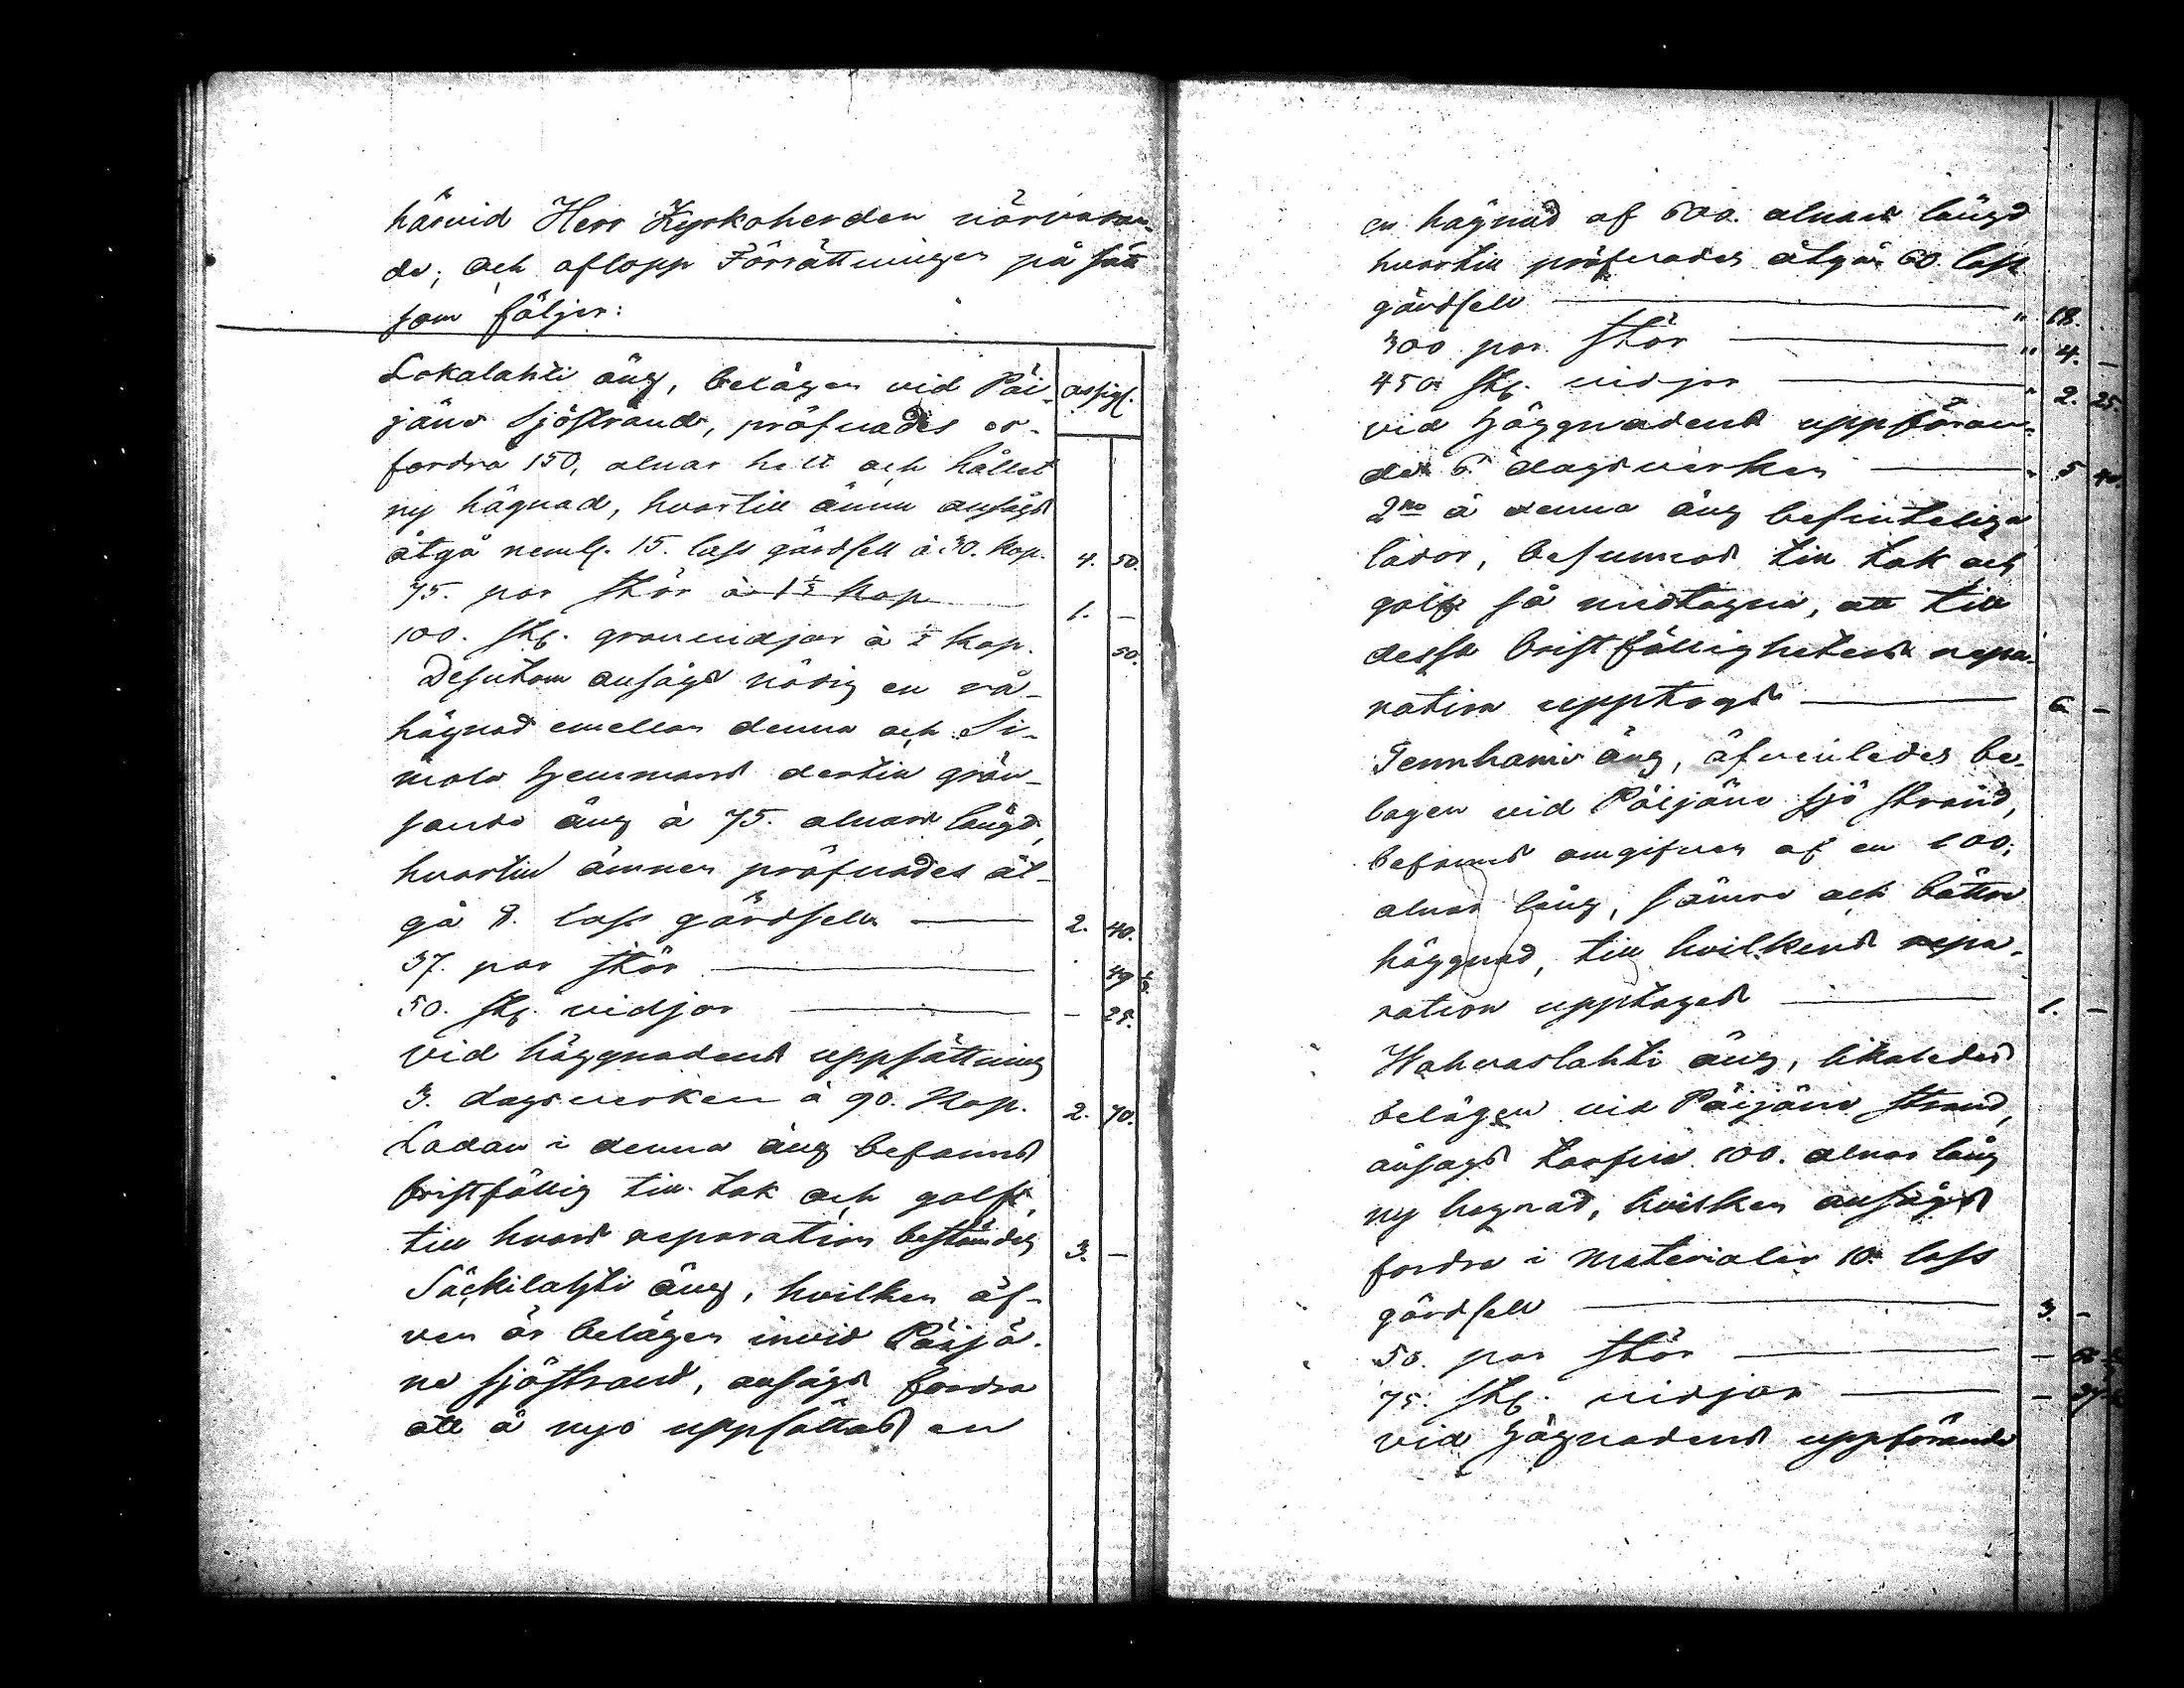 härvid Herr Kyrkoherden närvaran-
de; och aflopp Förrättningen på sätt
som följer:
assign.
Lokalahti äng, belägen vid Päi-
jäne Sjöstrand, pröfvades er-
fordra 150, alnar helt och hållet
ny hägnad, hvartill ämne ansågs
åtgå neml. 15. lass gärdsell à 30. Kop. 4. 50.
75. par stör à 1⅓ Kop 1. —
100. stk. granvidjor à ½ Kop. 50.
Desutom ansågs nödig en rå-
hägnad emellan denna och Si-
mola Hemmans dertill grän-
sande äng à 75. alnars längd,
hvartill ämnen pröfvades åt-
gå 8. lass gärdsell — 2. 40.
37. par stör — 49⅓
50. stk. vidjor — — 25.
vid häggnadens uppsättning
3. dagsverken à 90. Kop. 2. 70.
Ladan i denna äng befanns
bristfällig till tak och golf,
till hvars reparation bestämdes 3. —
Säckilahti äng, hvilken äf-
ven är belägen invid Päijä-
ne sjöstrand, ansågs fordra
att å nyo uppsättas en
en hägnad af 600. alnars längd
hvartill pröfvades åtgå 60. lass
gärdsell — " 18.
300 par stör — " 4. —
450. stk. vidjor — " 2. 25.
vid Häggnadens uppföran-
de 6. dagsverken — " 5 40.
2ne å denna äng befinteliga
lador, befunnos till tak och
golf så medtagna, att till
dessa bristfälligheters repa-
ration upptogs — 6 —
Temnhami äng, äfvenledes be-
lägen vid Päijäne sjö strand,
befanns omgifven af en 100,
alnar lång, sämre och bättre
häggnad, till hvilkens repa-
ration upptages — 1. —
Wahvaslahti äng, likaledes
belägen vid Päijäne strand,
ansågs tarfva 100. alnar lång
ny hägnad, hvilken ansågs
fordra i materialier 10. lass
gärdsell — 3. —
50. par stör — —
75. stk. vidjor — —
vid Hägnadens uppförande